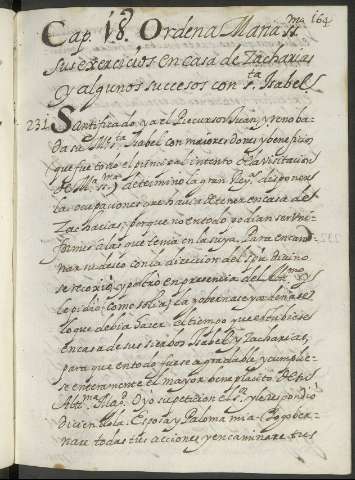 164
Cap. 18. Ordena Maria SS.ma
sus exercicios en casa de Zacharias
y algunos sucesos con S.ta Isabel
231 Santificado ya el Precursor Juan, y renoba-
da su M.e S.ta Isabel con maiores dones y beneficios
que fue todo el principal intento de la Visitacion
de M.a SS. determino la gran Rey.a disponer
las ocupaciones que havia de tener en casa de
Zacharias, porque no en todo podian ser uni-
formes a las que tenia en la suya. Para encami-
nar su deseo con la direccion del Spu. Divino
se recogio y postro en presencia del
le pidio como solia, la gobernase y ordenase
lo que debia hacer el tiempo que estubiese
en casa de sus siervos Isabel y Zacharias,
para que en todo fuese agradable, y cumplie-
se enteramente el mayor beneplacito de su
Alt.ma Mag.d Oyo su peticion el S.r y le respondio
diciendola. Esposa y Paloma mia Yo gober-
nare todas tus acciones y encaminare tus